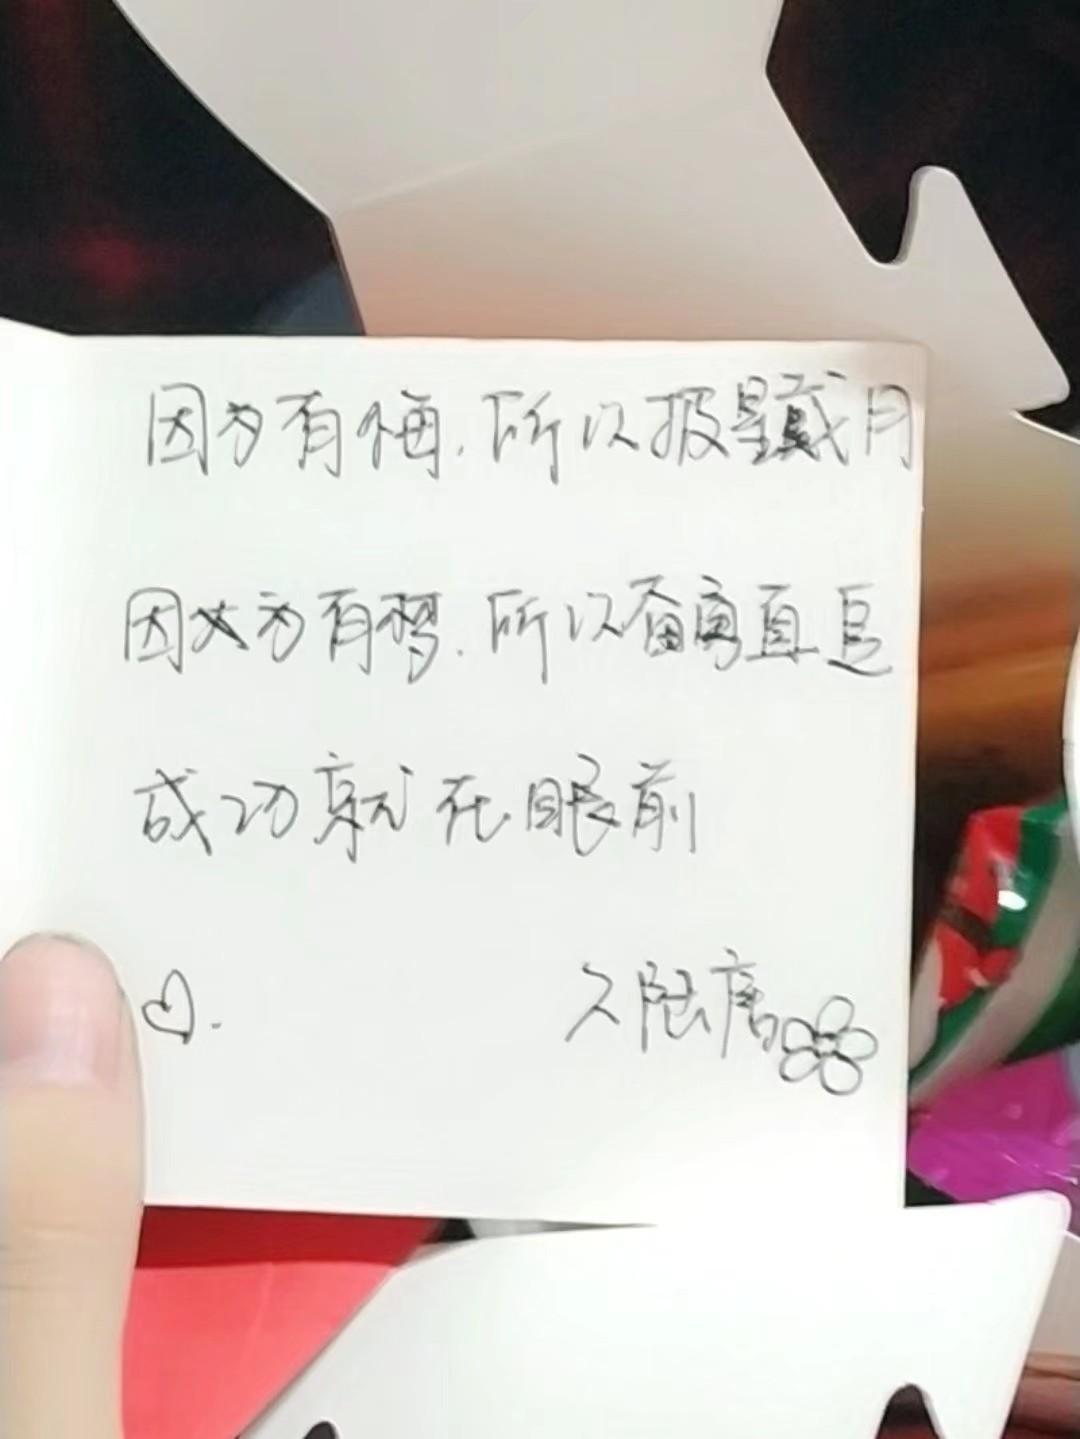 因为有悔，所以披星戴月
因为有梦，所以奋勇直追
成功就在眼前